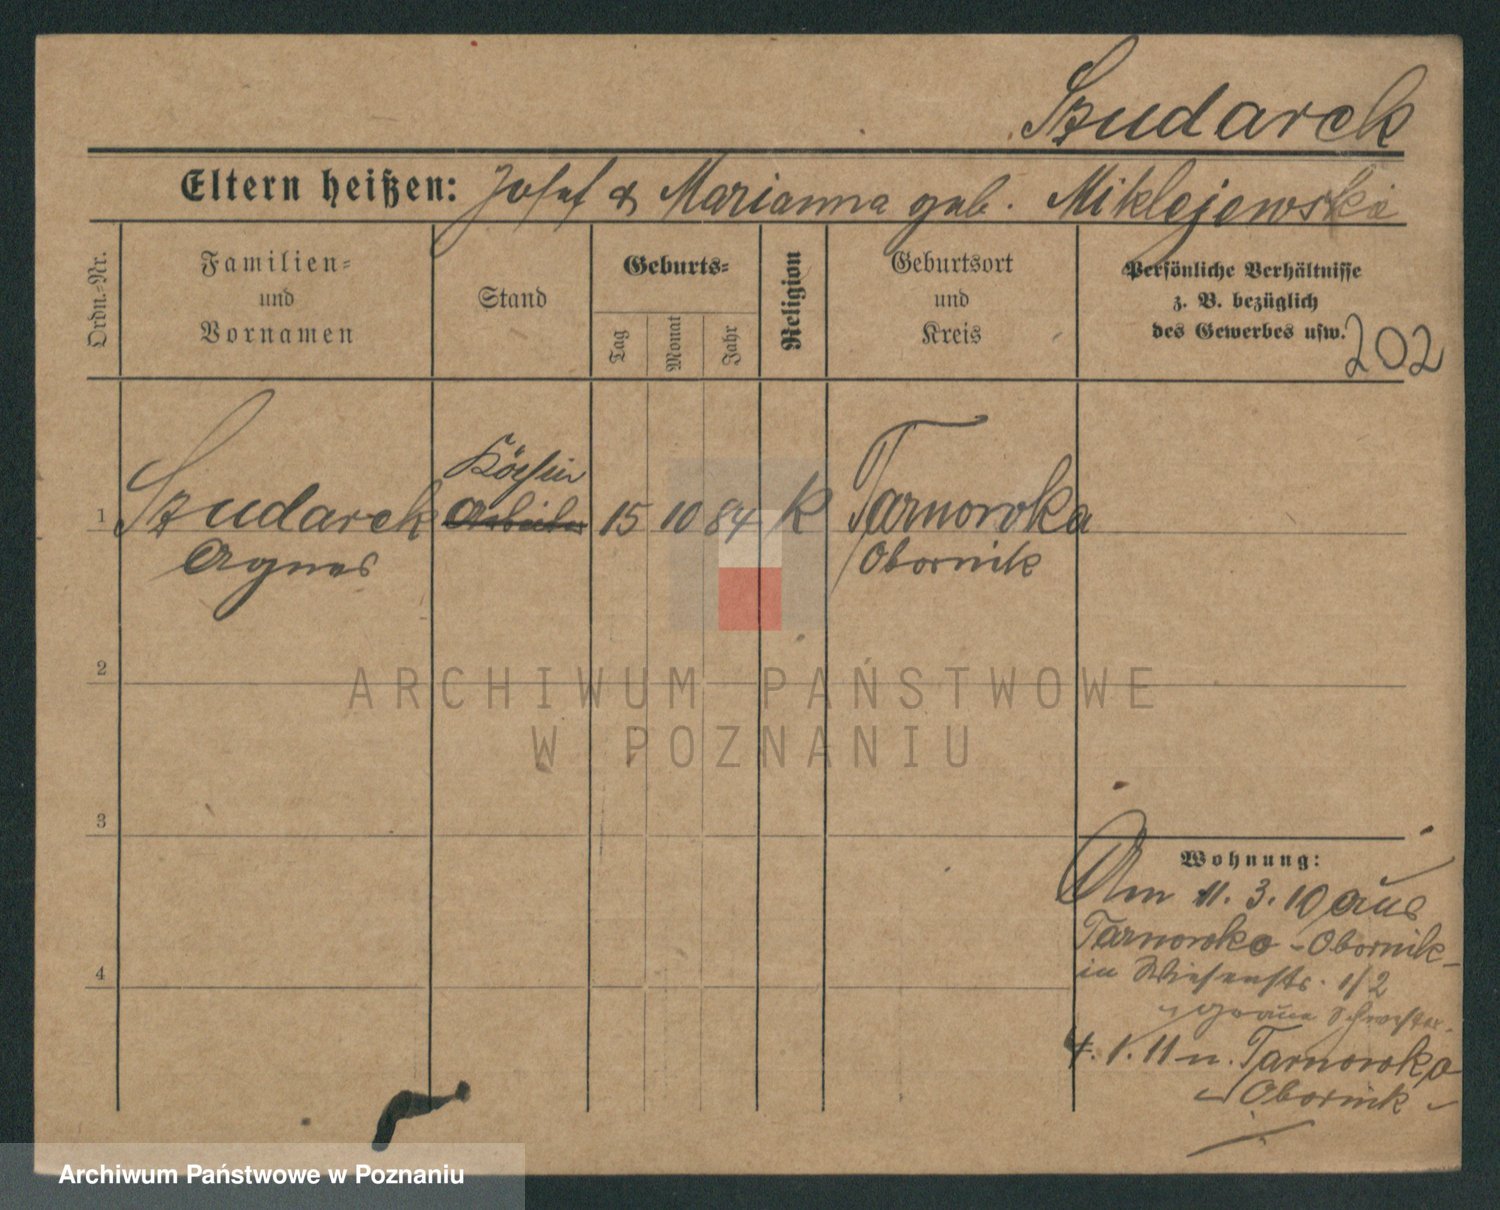 Szudarek
Eltern heißen: Josef & Marianna geb. Miklejewska
Ordn.-Nr.
Familien-
und
Vornamen
Stand
Geburts-
Tag
Monat
Jahr
Religion
Geburtsort
und
Kreis
Persönliche Verhältnisse
z. B. bezüglich
des Gewerbes usw.
202
Köchin
1 Szudarek Arbeiter 15 10 84 K Tarnowka
Agnes Obornik
2
ARCHIWUM PAŃSTWOWE
W POZNANIU
3
Wohnung:
Am 11. 3. 10 aus
Tarnowko - Obornik -
in Wiesenstr. 1/2
Graue Schwester.
4
4. 1. 11 n. Tarnowko
Obornik
Archiwum Państwowe w Poznaniu